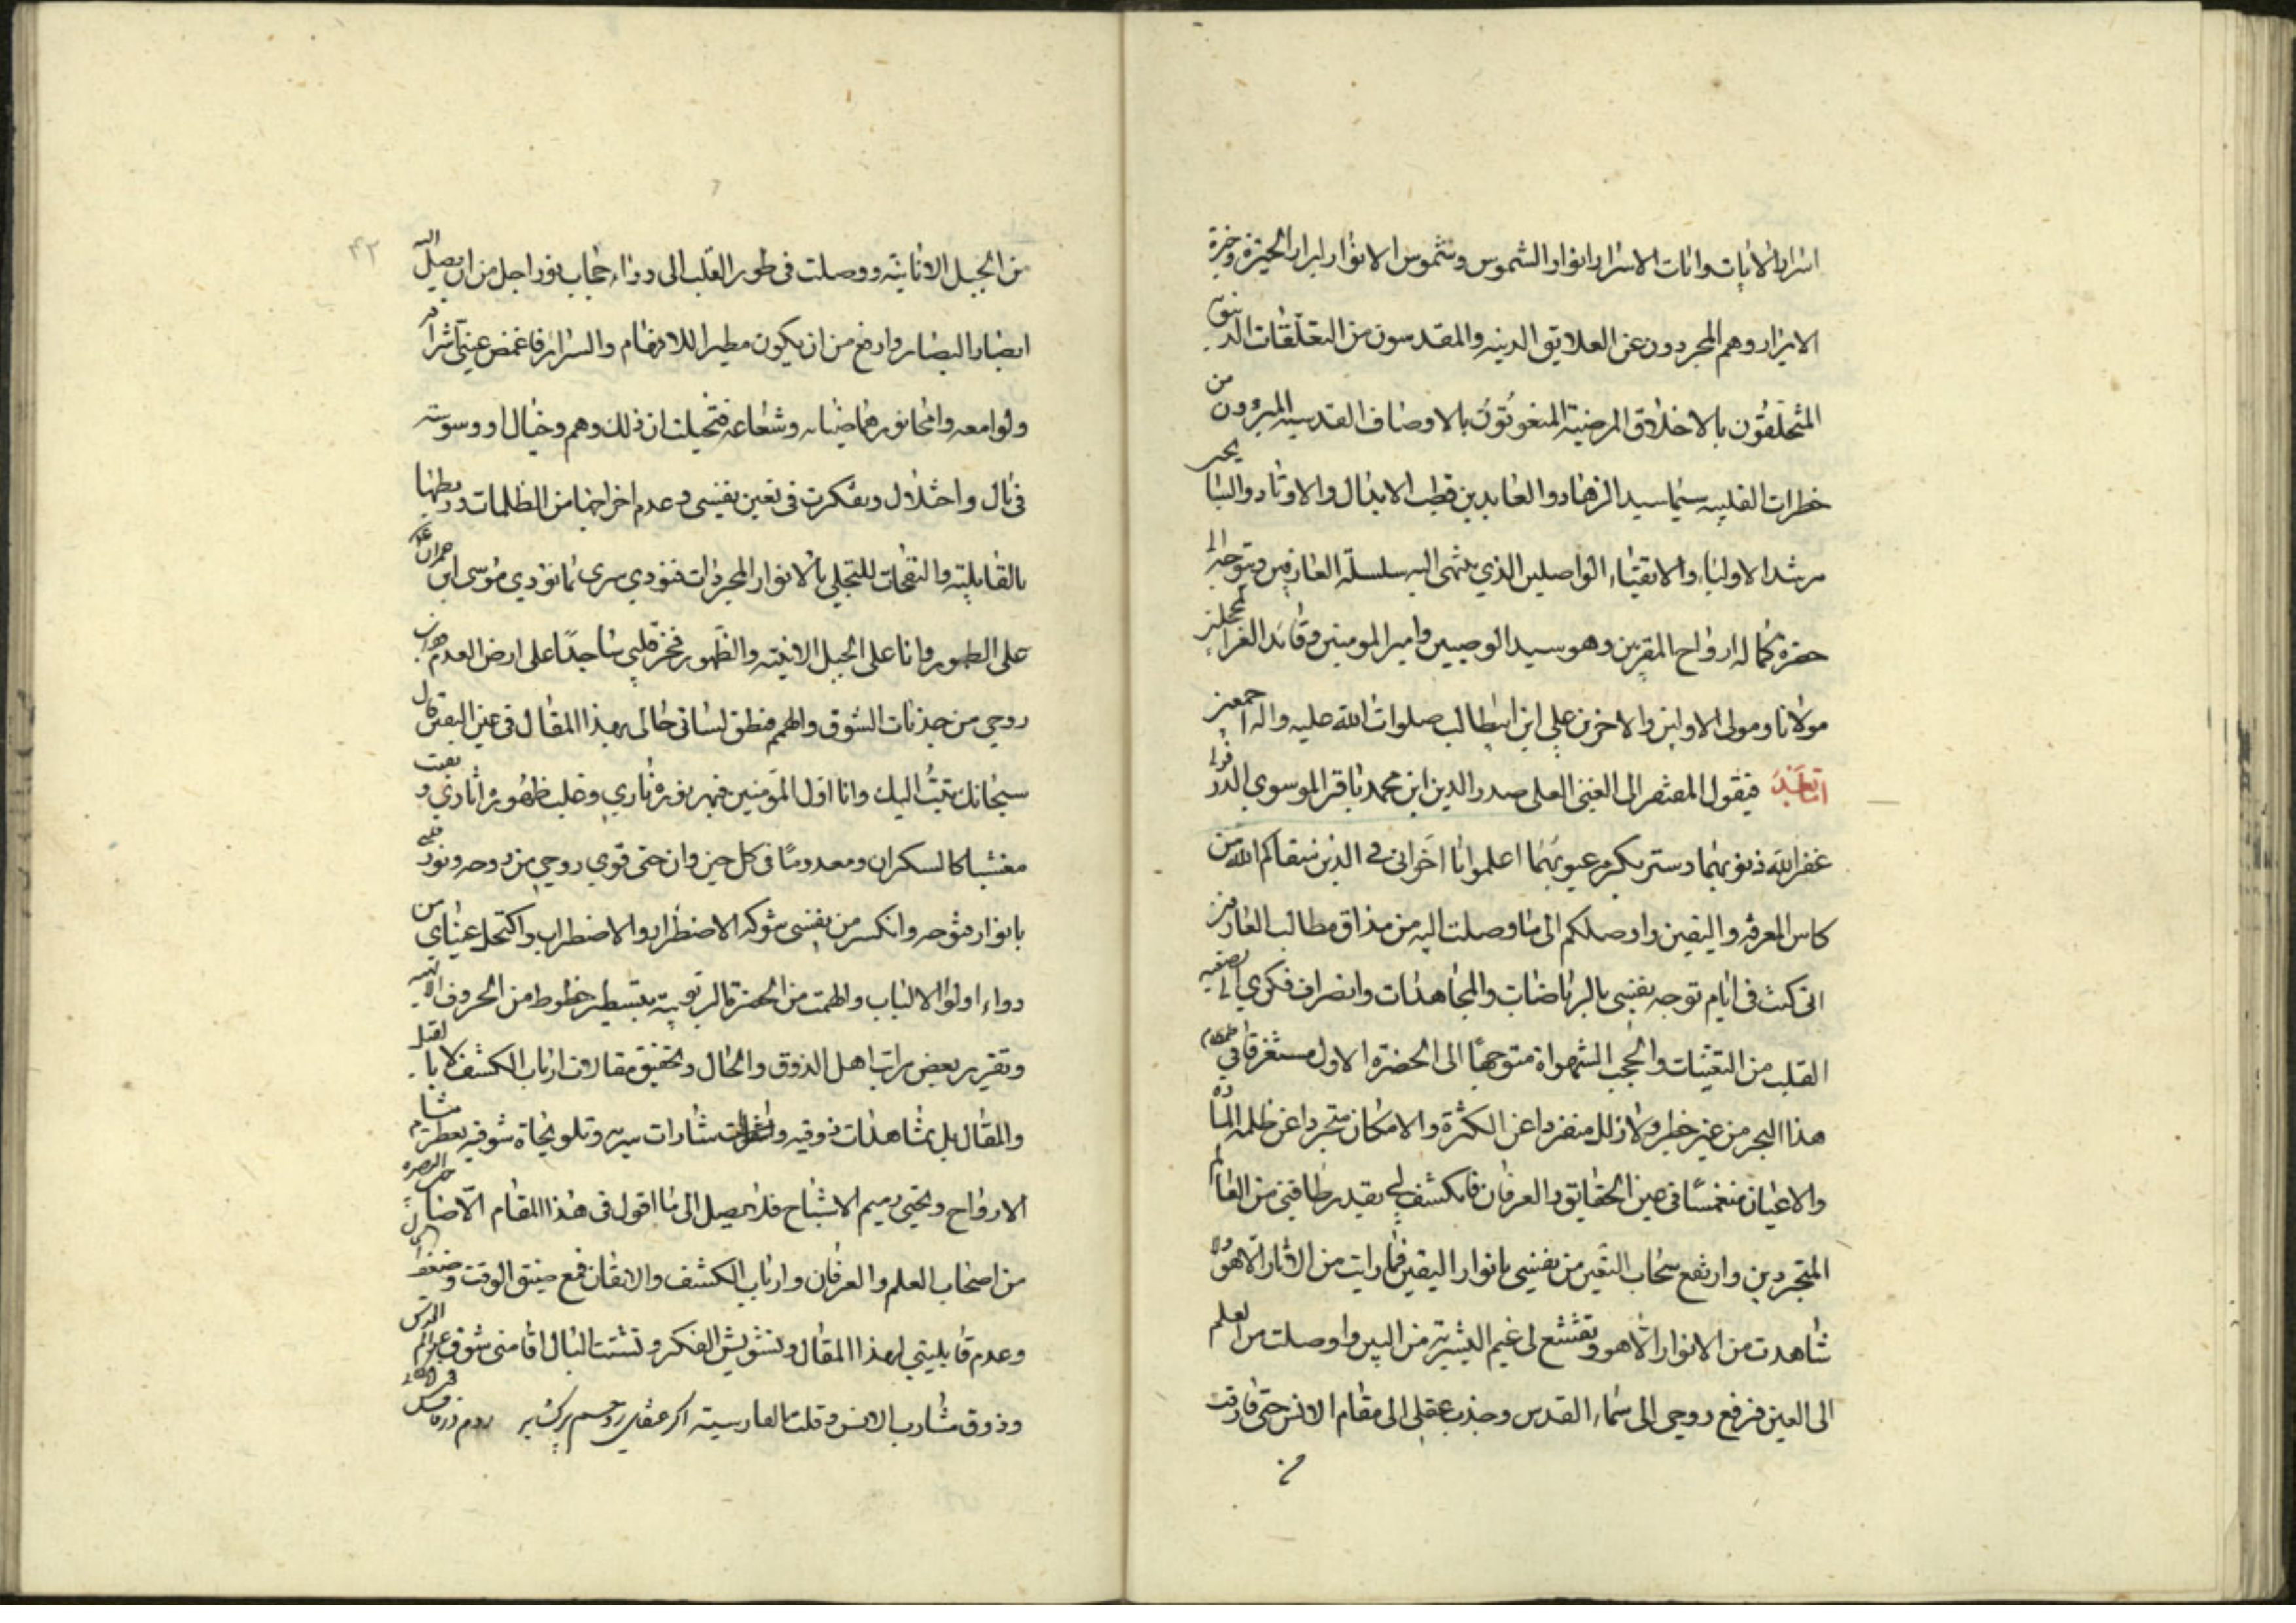 اسرار الايات وايات الاسرار انوار الشموس وشموس الانوار ابرار الحيرة وخيرة
الابرار وهم المجردون عن العلايق الدينه والمقدسون من التعلقات الدنيوية
المتخلقون بالاخلاق المرضية المنعوتون بالاوصاف القدسيه المبرؤون من
خطرات القلبيه سيما سيد الزهاد والعابدين قطب الابدال والاوتاد والنباء
مرشد الاولياء والاتقياء الواصلين الذي ينتهى اليه سلسلة العارفين ويتوجه الى
حضرة كماله ارواح المقربين وهو سيد الوصيين وامير المومنين وقائد الغر المحجلين
مولانا ومولى الاولين والاخرين علي ابن ابيطالب صلوات الله عليه واله اجمعين
اما بعد فيقول المفتقر الى الغني العلي صدر الدين ابن محمد باقر الموسوي الدزفولي
غفر الله ذنوبهما وستر بكرمه عيوبهما اعلموا يا اخواني في الدين سقاكم الله من
كاس المعرفه واليقين واوصلكم الى ما وصلت اليه من مذاق مطالب العارفين
اني كنت في ايام توجه نفسي بالرياضات والمجاهدات وانصراف فكري الى تصفيه
القلب من التعينات والحجب الشهواة متوجها الى الحضرة الاول مستغرقا في طمطام
هذا البحر من غير خطر ولا زلل منفردا عن الكثرة والامكان متجردا عن ظلمة المادة
والاعيان منغمسا في عين الحقايق والعرفان فانكشف لي بقدر طاقتي من العالم
المتجردين وارتفع سحاب التعين من نفسي بانوار اليقين فما رايت من الاثار الا هو ولا
شاهدت من الانوار الا هو وتقشع لي غيم البشرية من البين واوصلت من العلم
الى العين فرفع روحي الى سماء القدس وجذب عقلي الى مقام الانس حتى فارقت
من
۴۲
من الجبل الانانيته ووصلت في طور القلب الى وراء حجاب نور اجل من ان يصل اليه
ابصار البصاير وارفع من ان يكون مطيرا للافهام والسراير فاغمض عيني اشراقه
ولوامعه وامحا نورهما ضيائه وشعاعه فتخيلت ان ذلك وهم وخيال او وسوسته
في بال واختلال وتفكرت في تعين نفسي وعدم اخراجها من الظلمات وربطها
بالقابليته والنفحات للتجلي بالانوار المجردات فنودي سرى كما نودي موسى ابن عمران
على الطور وانا على الجبل الانيته والظهور فخر قلبي ساجدا على ارض العدم
روحي من جذبات الشوق والهمم فنطق لساني حالى بهذا المقال في عين اليقين قال
سبحانك تبت اليك وانا اول المؤمنين فبهر نوره ناري وغلب ظهوره اثاري وبقيت
مغشيا كالسكران ومعدوما في كل حين وان حتى قوي روحي من روحه ونور قلبي
بانوار فتوحه وانكسر من نفسي شوكه الاضطرار والاضطراب واكتحل عيناي من
دواء اولوا الالباب والهمت من الحضرة الربوبيته بتسطير خطوط من الحروف
وتقرير بعض مراتب اهل الذوق والحال وتحقيق مقالات ارباب الكشف لا با لقيل
والمقال بل بمشاهدات ذوقيه شارات سريه وتلويحاة شوقيه يعطر مشام
الارواح ويحيي رميم الاشباح فلا يصل الى ما اقول في هذا المقام الا صاحب البصيرة
من اصحاب العلم والعرفان وارباب الكشف والايقان فمع ضيق الوقت
وعدم قابليتي لهذا المقال وتشويش الفكر وتشتت البال اقامني شوق عالم القدس
وذوق مشارب الانس وقلت بالفارسيته اكر عنقاى روحم پر